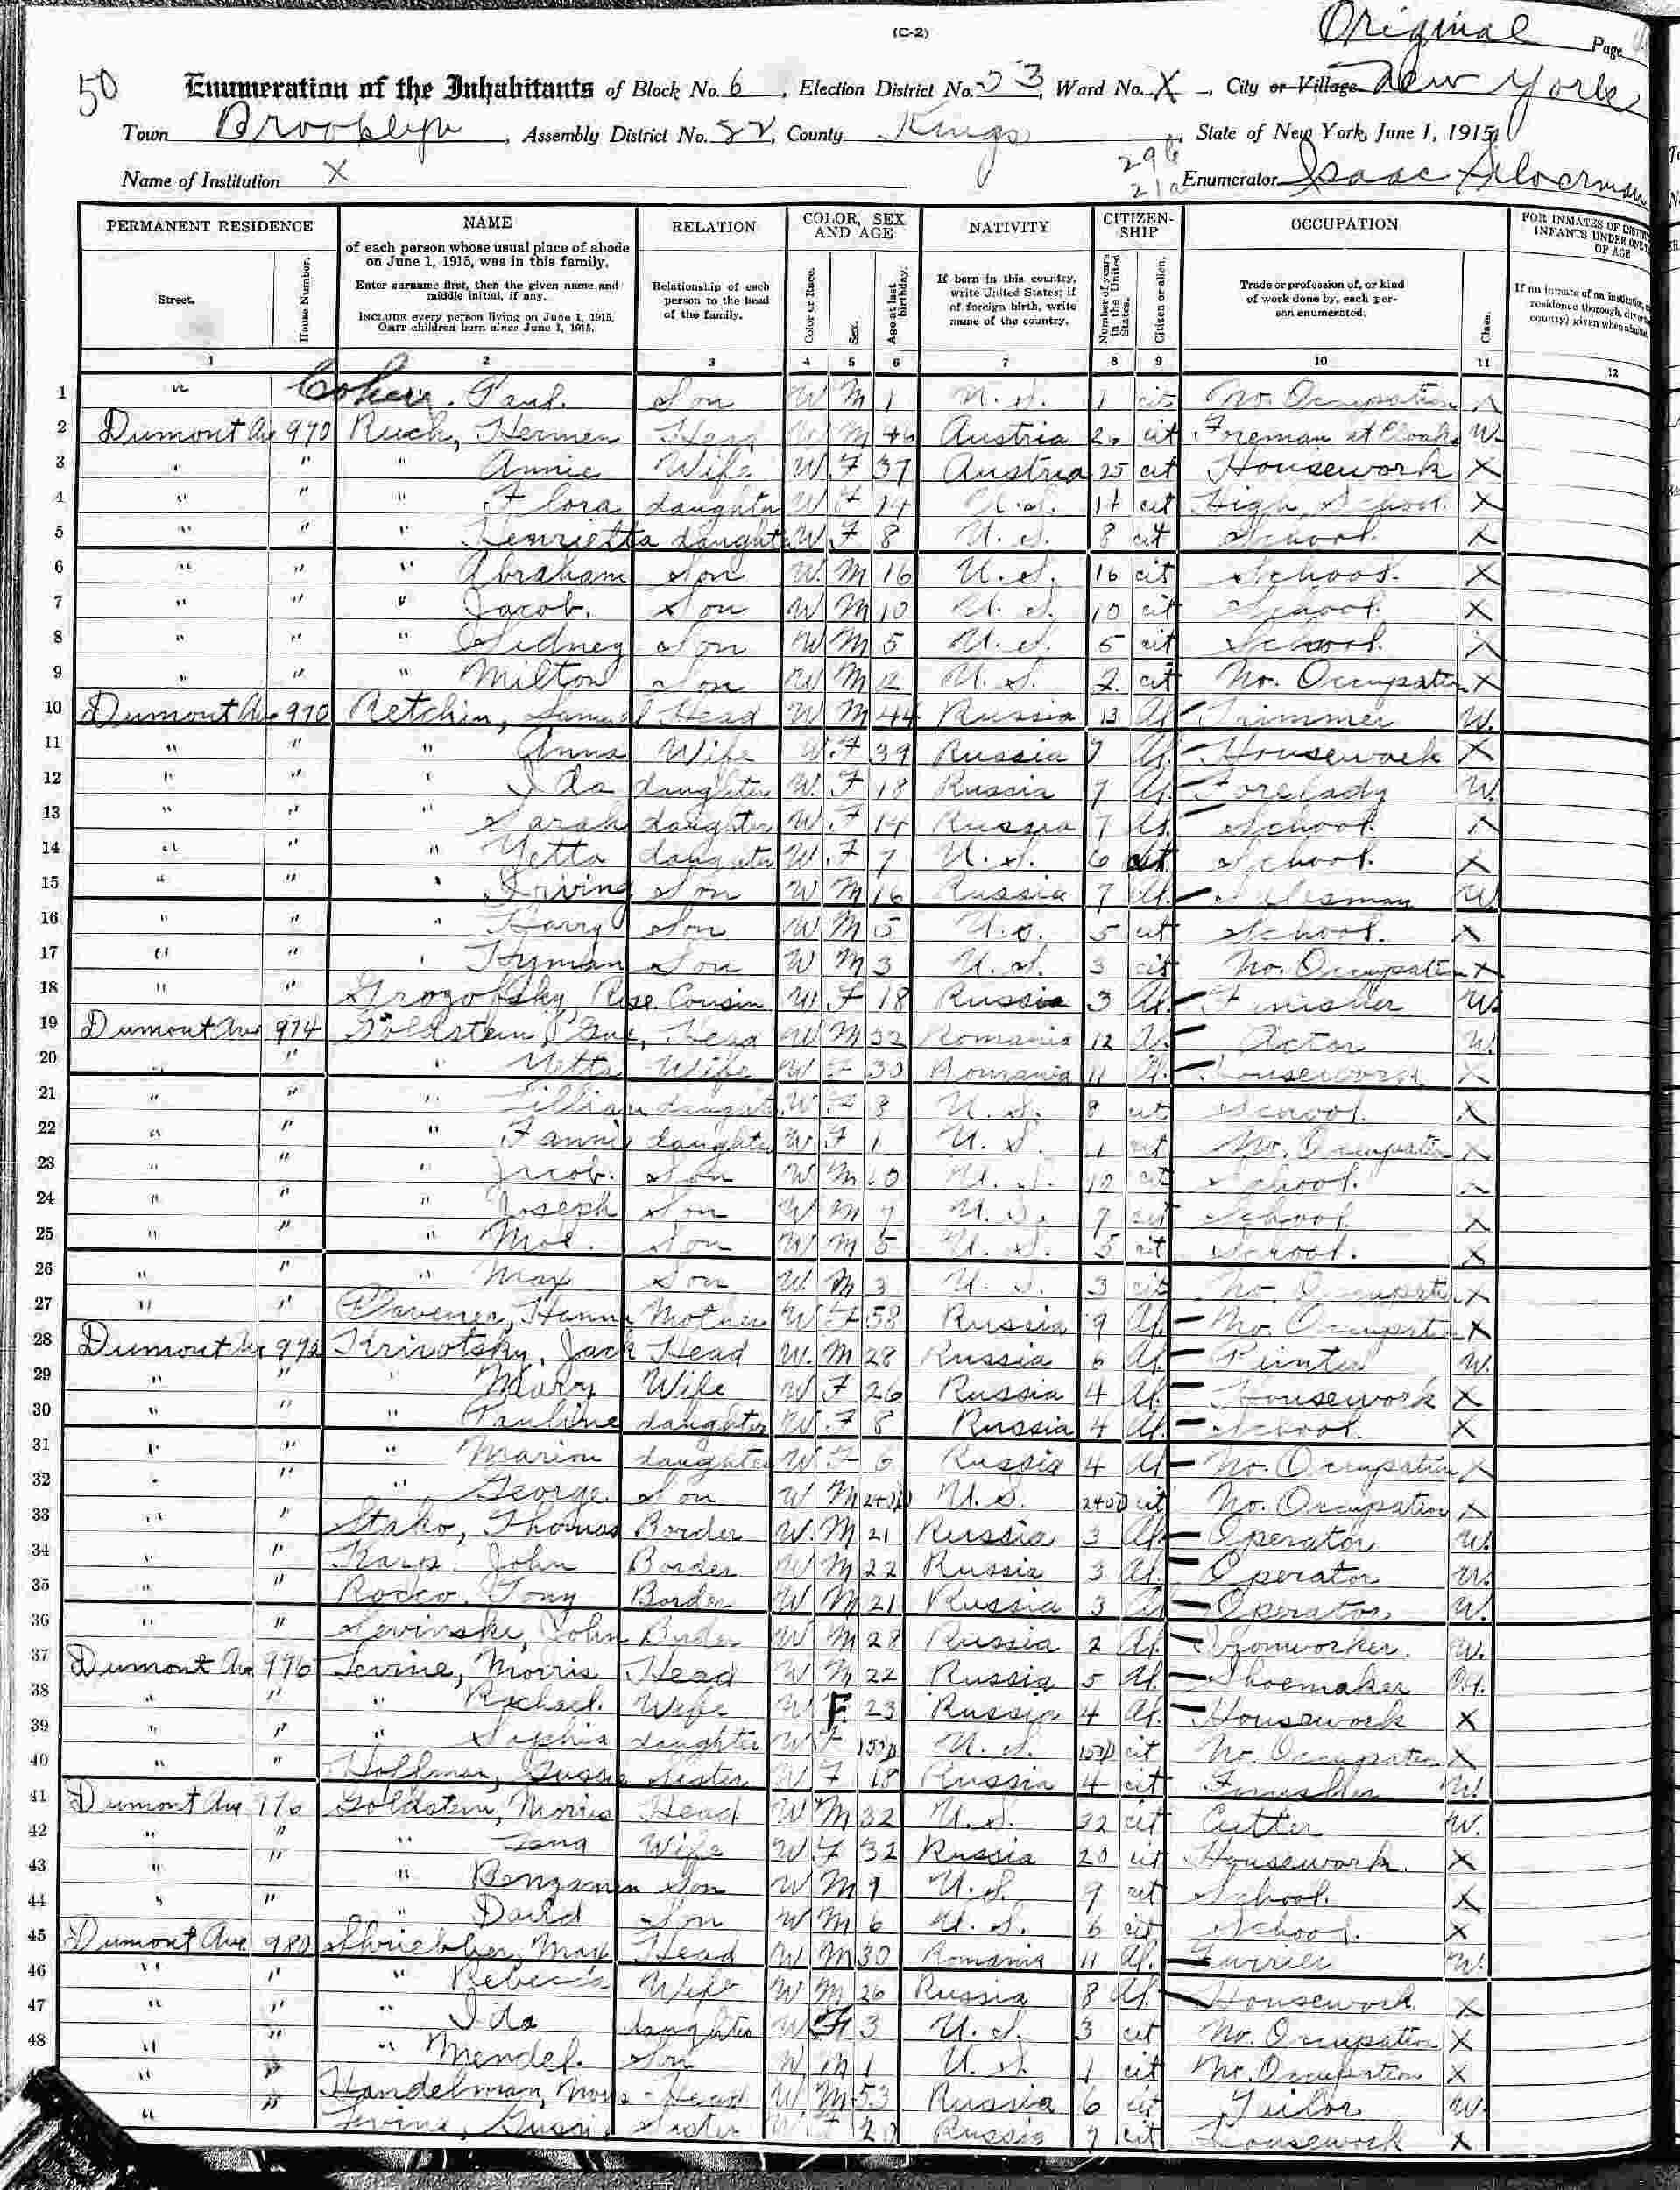 (C-2)
Original Page
50 Enumeration of the Inhabitants of Block No. 6, Election District No. 23, Ward No. X, City or Village New York
Town Brooklyn, Assembly District No. 22, County Kings, State of New York, June 1, 1915
Name of Institution X Enumerator Isaac Silverman
29b
21a
PERMANENT RESIDENCE NAME RELATION COLOR, SEX AND AGE NATIVITY CITIZENSHIP OCCUPATION
of each person whose usual place of abode on June 1, 1915, was in this family.
Enter surname first, then the given name and middle initial, if any.
INCLUDE every person living on June 1, 1915. OMIT children born since June 1, 1915.
Street. House Number. Relationship of each person to the head of the family. Color or Race. Sex. Age at last birthday. If born in this country, write United States; if of foreign birth, write name of the country. Number of years in the United States. Citizen or alien. Trade or profession of, or kind of work done by, each person enumerated. Class.
FOR INMATES OF INFANTS UNDER ONE OF AGE
If an inmate of an institution residence county) given when
1 2 3 4 5 6 7 8 9 10 11 12
1 " Cohen. Paul. Son W M 1 U. S. 1 cit No. Occupation X
2 Dumont Av 970 Ruch, Hermen Head W M 46 Austria cit Foreman at Cloaks W.
3 " " " Annie Wife W F 37 Austria 25 cit Housework X
4 " " " Flora daughter W F 14 U.S. 14 cit High School. X
5 " " " Henrietta daught W F 8 U. S. 8 cit School. X
6 " " " Abraham Son W. M 16 U. S. 16 cit School. X
7 " " " Jacob. Son W M 10 U. S. 10 cit School. X
8 " " " Sidney Son W M 5 U. S. 5 cit School. X
9 " " " Milton Son W M 2 U. S. 2 cit No. Occupation X
10 Dumont Av 970 Retchin, Samuel Head W M 44 Russia 13 Al Trimmer W.
11 " " " Anna Wife W. F 39 Russia 7 Al. Housework X
12 " " " Ida daughter W. F 18 Russia 7 Al. Forelady W.
13 " " " Sarah daughter W. F 14 Russia 7 Al. School. X
14 " " " Yetta daughter W. F 7 U. S. 6 cit School. X
15 " " " Irving Son W M 16 Russia 7 Al. Salesman W
16 " " " Harry Son W M 5 U.S. 5 cit School. X
17 " " " Hyman Son W M 3 U. S. 3 cit No. Occupation X
18 " " Grozofsky, Rose. Cousin W F 18 Russia 3 Al. Finisher W.
19 Dumont Ave 974 Goldstein, Head W M 32 Romania 12 Al. Actor W.
20 " " " Yetta Wife W F 30 Romania 11 Al. Housework X
21 " " " Lillian daughter W F 8 U. S. 8 cit School. X
22 " " " Fannie daughter W F 1 U. S. 1 cit No. Occupation X
23 " " " Jacob. Son W M 10 U. S. 10 cit School. X
24 " " " Joseph Son W M 7 U. S. 7 cit School X
25 " " " Moe. Son W M 5 U. S. 5 cit School. X
26 " " " Max Son W. M 3 U. S. 3 cit No. Occupation X
27 " " Hanna Mother W F 58 Russia 9 Al. No. Occupation X
28 Dumont Av 972 Krivotsky, Jack Head W. M 28 Russia 6 Al. W.
29 " " " Mary Wife W F 26 Russia 4 Al. Housework X
30 " " " Pauline daughter W. F 8 Russia 4 Al. School. X
31 " " " Marion daughter W F 6 Russia 4 Al No. Occupation X
32 " " " George. Son W M U.S. cit No. Occupation X
33 " " Stako, Thomas Border W. M 21 Russia 3 Al. Operator W.
34 " " Karp. John Border W M 22 Russia 3 Al. Operator W.
35 " " Rocco. Tony Border W M 21 Russia 3 Al Operator W.
36 " " Levinski, John Border W M 28 Russia 2 Al. Ironworker. W.
37 Dumont Av 976 Levine, Morris Head W M 22 Russia 5 Al. Shoemaker
38 " " " Rachael. Wife W F 23 Russia 4 Al. Housework X
39 " " " Sophia daughter W F U. S. cit No. Occupation X
40 " " Hoffman, Gussie Sister W F 18 Russia 4 cit Finisher W.
41 Dumont Av 976 Goldstein, Morris Head W M 32 U. S. 32 cit Cutter W.
42 " " " Lena Wife W F 32 Russia 20 cit Housework. X
43 " " " Benjamin Son W M 9 U.S. 9 cit School. X
44 " " " David Son W M 6 U. S. 6 cit School. X
45 Dumont Ave 980 Max Head W M 30 Romania 11 Al. Furrier W.
46 " " " Rebecca Wife W M 26 Russia 8 Al. Housework. X
47 " " " Ida daughter W F 3 U. S. 3 cit No. Occupation X
48 " " " Mendel. Son W M 1 U. S. 1 cit No. Occupation X
" " Handelman, Morris Head W M 53 Russia 6 cit Tailor W.
" " Levine, Gussie Sister W F 20 Russia 7 cit Housework X